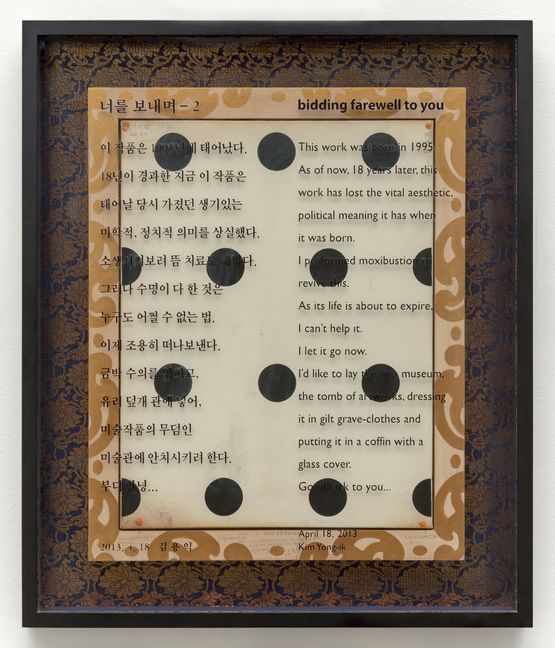 너를 보내며 – 2
이 작품은 1995년에 태어났다.
18년이 경과한 지금 이 작품은
태어날 당시 가졌던 생기있는
미학적, 정치적 의미를 상실했다.
소생시켜보려 뜸 치료도
그러나 수명이 다 한 것은
누구도 어쩔 수 없는 법.
이제 조용히 떠나보낸다.
금박 수의를
유리 덮개 관에 넣어,
미술작품의 무덤인
미술관에 안치시키려 한다.
부디 안녕...
2013. 4. 18 김용익
bidding farewell to you
This work was born in 1995.
As of now, 18 years later, this
work has lost the vital aesthetic,
political meaning it has when
it was born.
I performed moxibustion to
revive this.
As its life is about to expire,
I can't help it.
I let it go now.
I'd like to lay this in a museum,
the tomb of artworks, dressing
it in gilt grave-clothes and
putting it in a coffin with a
glass cover.
Good luck to you...
April 18, 2013
Kim Yong-ik